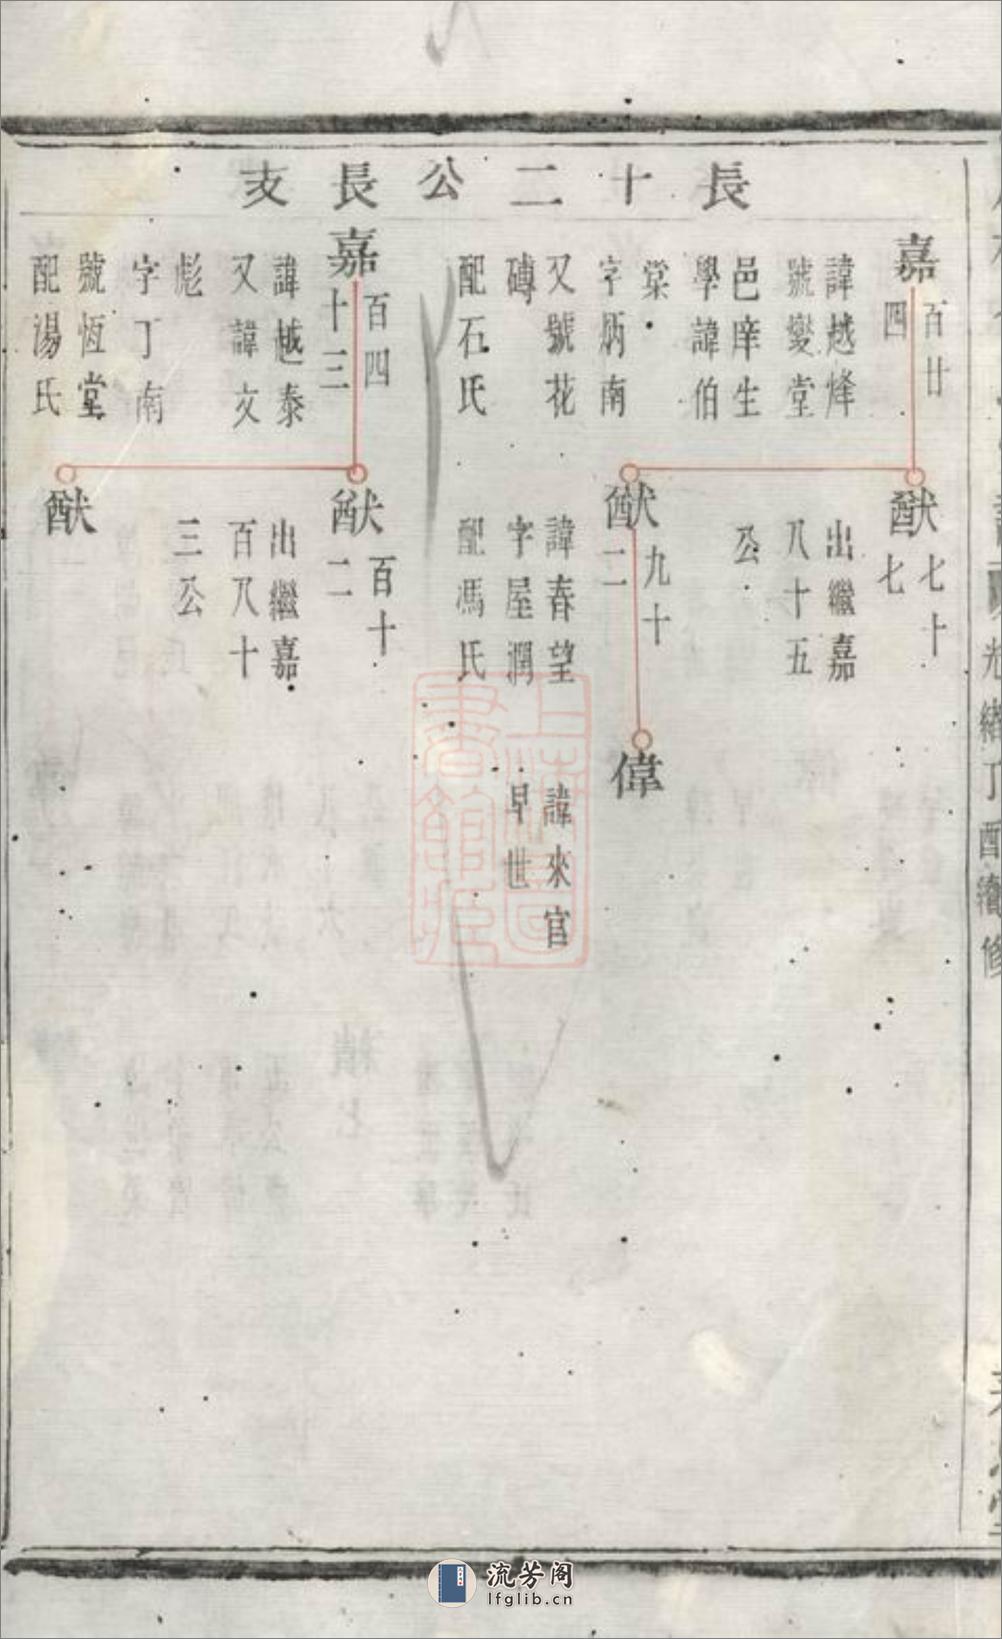 長十二公長支
嘉百廿四
諱越烽
號變堂
邑庠生
學諱伯
棠
字炳南
又號花
磚
配石氏
嘉百四十三
諱越泰
又諱文
彪
字丁南
號恆堂
配湯氏
猷七十七
出繼嘉
八十五
公
猷九十二
諱春望
字屋潤
配馮氏
猷百十二
出繼嘉
百八十
三公
猷
偉
諱來官
早世
光緒丁酉
修
上海圖書館藏
流芳阁
lfglib.cn